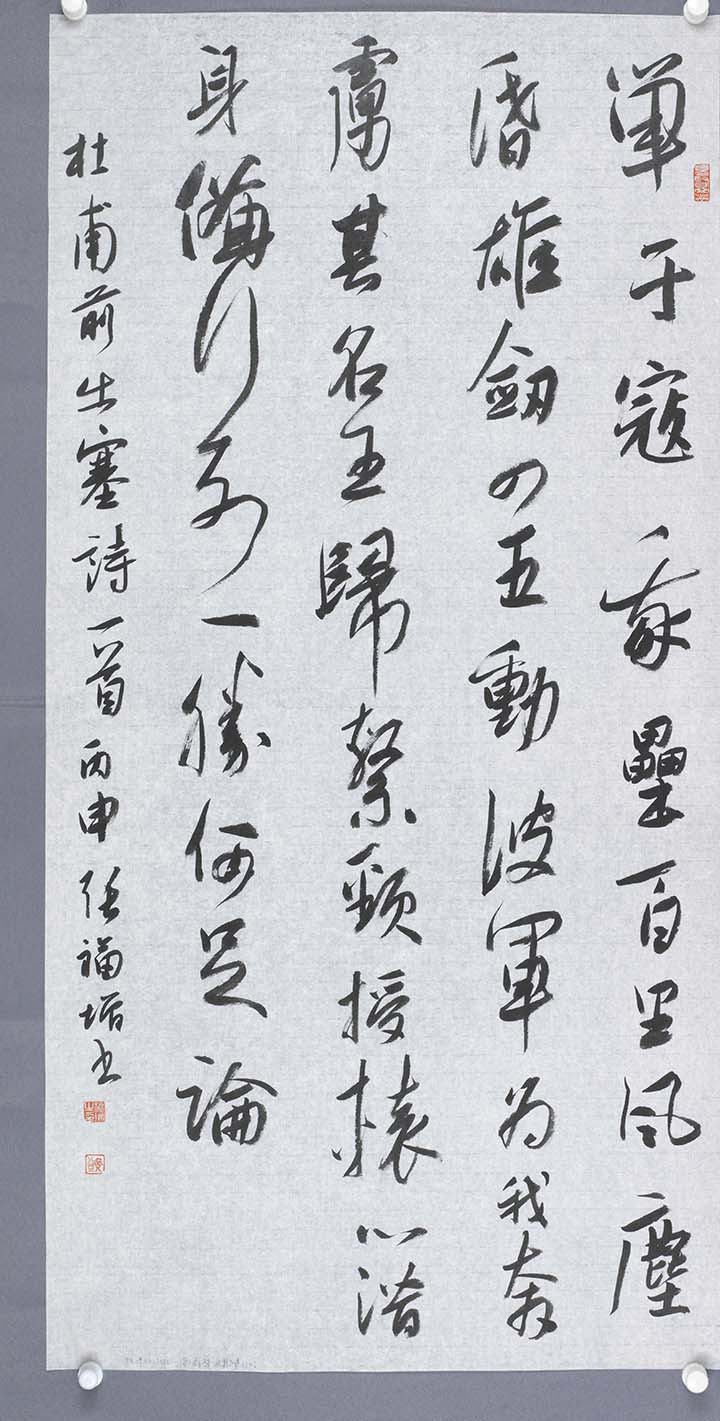 單于寇我壘百里風塵
昏雄劒四五動彼軍为我奔
虜其名王歸繫頸授轅門潛
身備行列一勝何足論
杜甫前出塞詩一首丙申福书